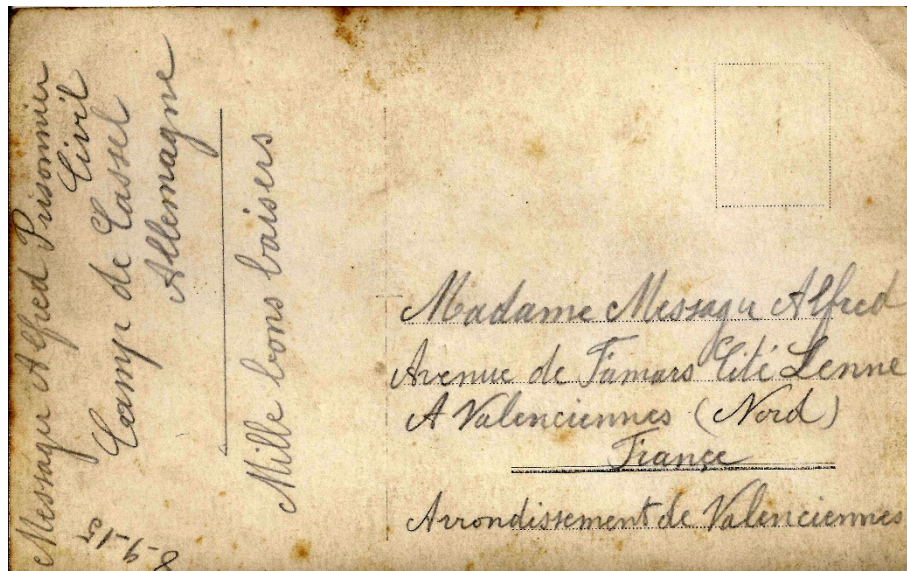 Messagu Alfred Prisonnier
Civil
Camp de Cassel
Allemagne
Mille bons baisers
8_9_15
Madame Messagu Alfred
Avenue de Famars Cité Lenne
A Valenciennes (Nord)
France
Arrondissement de Valenciennes